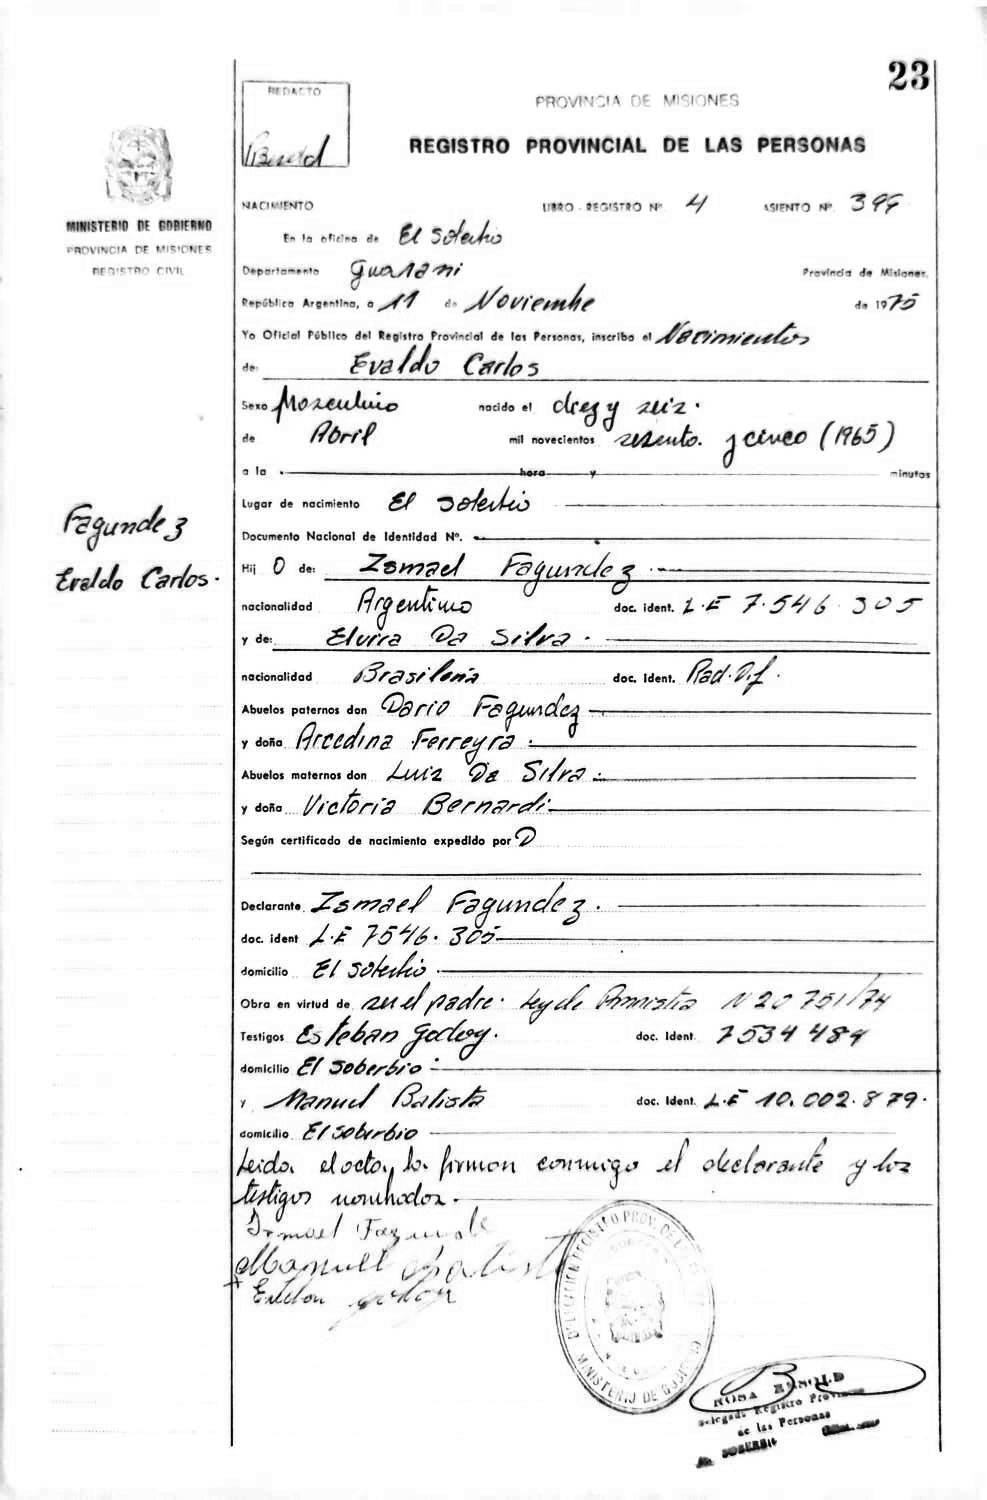 23
REDACTO
PROVINCIA DE MISIONES
REGISTRO PROVINCIAL DE LAS PERSONAS
MINISTERIO DE GOBIERNO
PROVINCIA DE MISIONES
REGISTRO CIVIL
NACIMIENTO LIBRO - REGISTRO Nº 4 ASIENTO Nº 399
En la oficina de El Soberbio
Departamento Guarani Provincia de Misiones,
República Argentina, a 11 de Noviembre de 1975
Yo Oficial Público del Registro Provincial de las Personas, inscribo el Nacimientos
de: Evaldo Carlos
Sexo Masculino nacido el diez y seiz.
de Abril mil novecientos sesenta. y cinco (1965)
a la hora y minutos
Lugar de nacimiento El Soberbio
Documento Nacional de Identidad Nº.
Fagundez
Evaldo Carlos.
Hij O de: Ismael Fagundez
nacionalidad Argentino doc. ident. L.E 7.546.305
y de: Elvira Da Silva.
nacionalidad Brasileña doc. ident. Rad. D.f.
Abuelos paternos don Dario Fagundez
y doña Arcedina Ferreyra.
Abuelos maternos don Luiz Da Silva.
y doña Victoria Bernardi
Según certificado de nacimiento expedido por D
Declarante Ismael Fagundez.
doc. ident L.E 7546.305
domicilio El Soberbio.
Obra en virtud de ser el padre. Ley de Amnistia N 20751/74
Testigos Esteban Godoy. doc. ident. 7534484
domicilio El Soberbio.
y Manuel Batista doc. ident. L.E 10.002.879.
domicilio El Soberbio
Leida el acta, la firman conmigo el declarante y los
testigos nombrados.
Ismael Fagunde
Manuel Batist
Esteban godoy
MINISTERIO DE GOBIERNO
ROSA
Delegada Registro Provincial
de las Personas
SOBERBIO